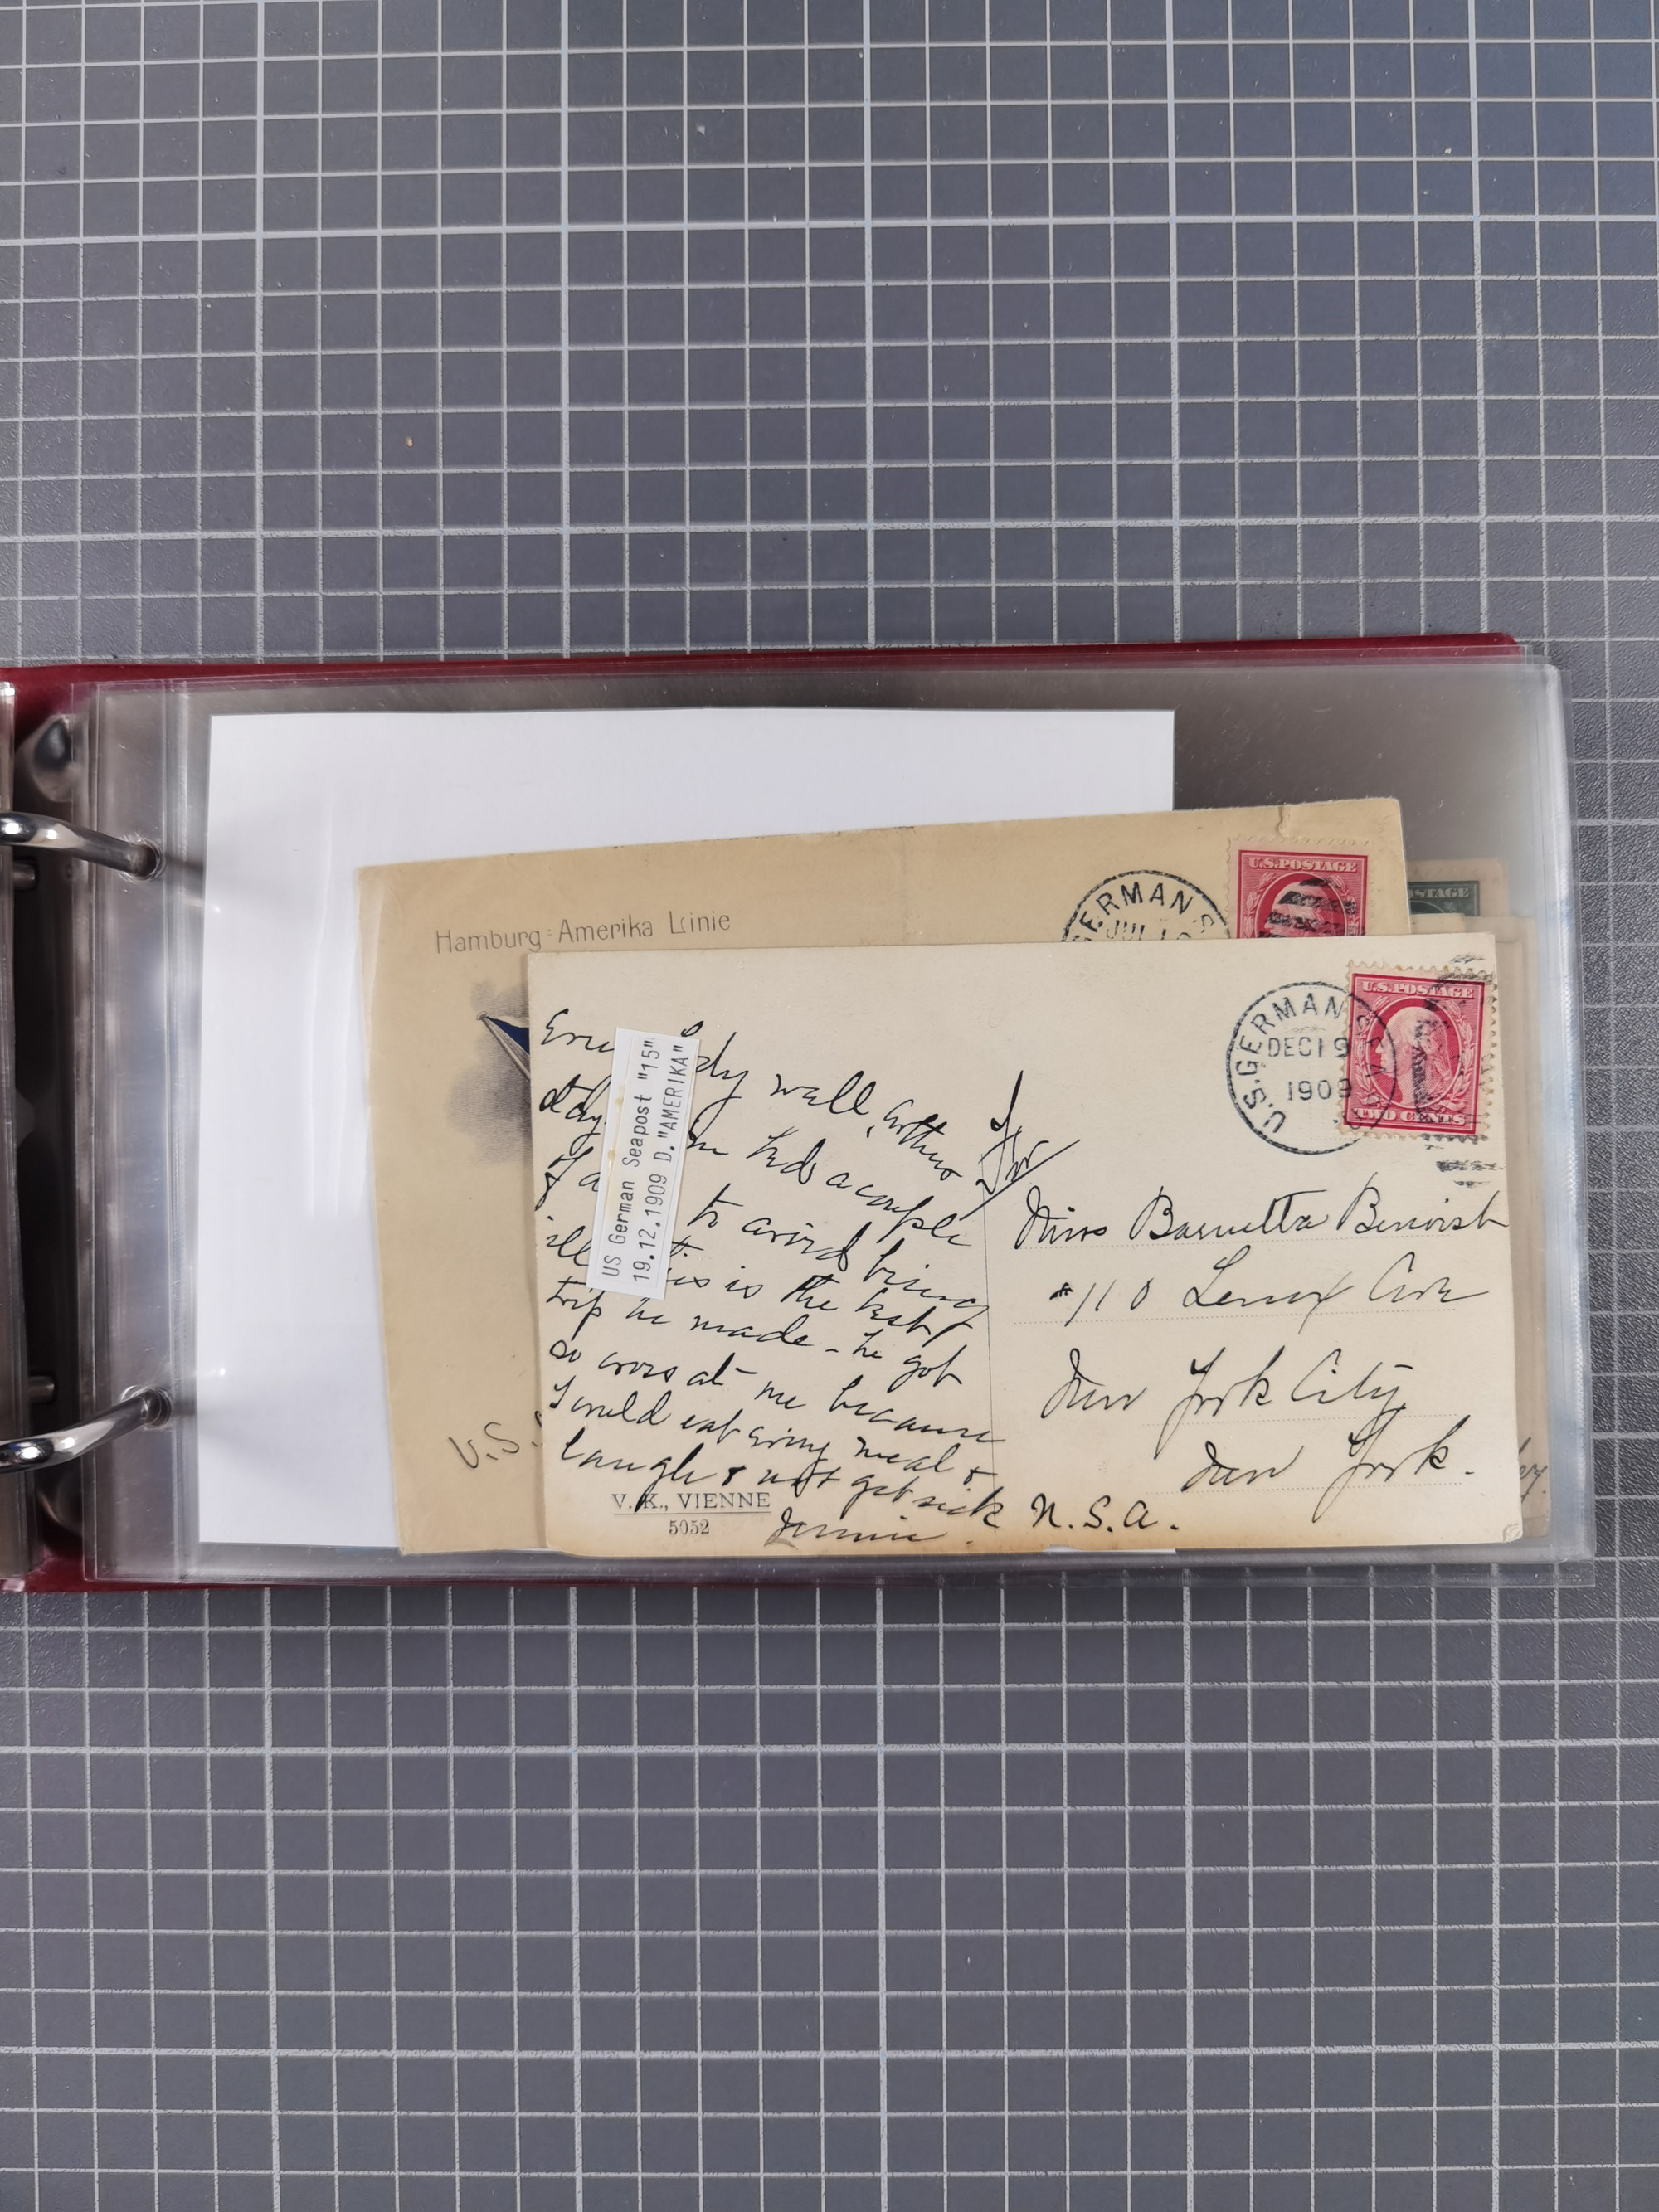 Hamburg-Amerika Linie
GERMAN S
JUL 1
U.S.POSTAGE
STAGE
U.S.
U.S. GERMAN SEA
DEC 19
1909
U.S.POSTAGE
TWO CENTS
US German Seapost "15"
19.12.1909 D."AMERIKA"
well, Arthur
had a couple
of to avoid being
ill. is is the best
trip he made - he got
so cross at me because
I would eat every meal &
laugh & not get sick
Jennie.
V. K., VIENNE
5052
Miss Barnetta Benoist
#110 Lenox Ave
New York City
New York.
U.S.A.